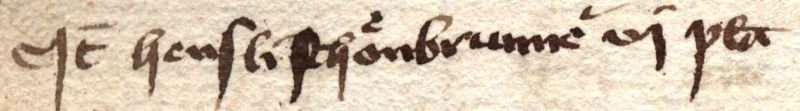 Jt hensli schonbrunne vj pla